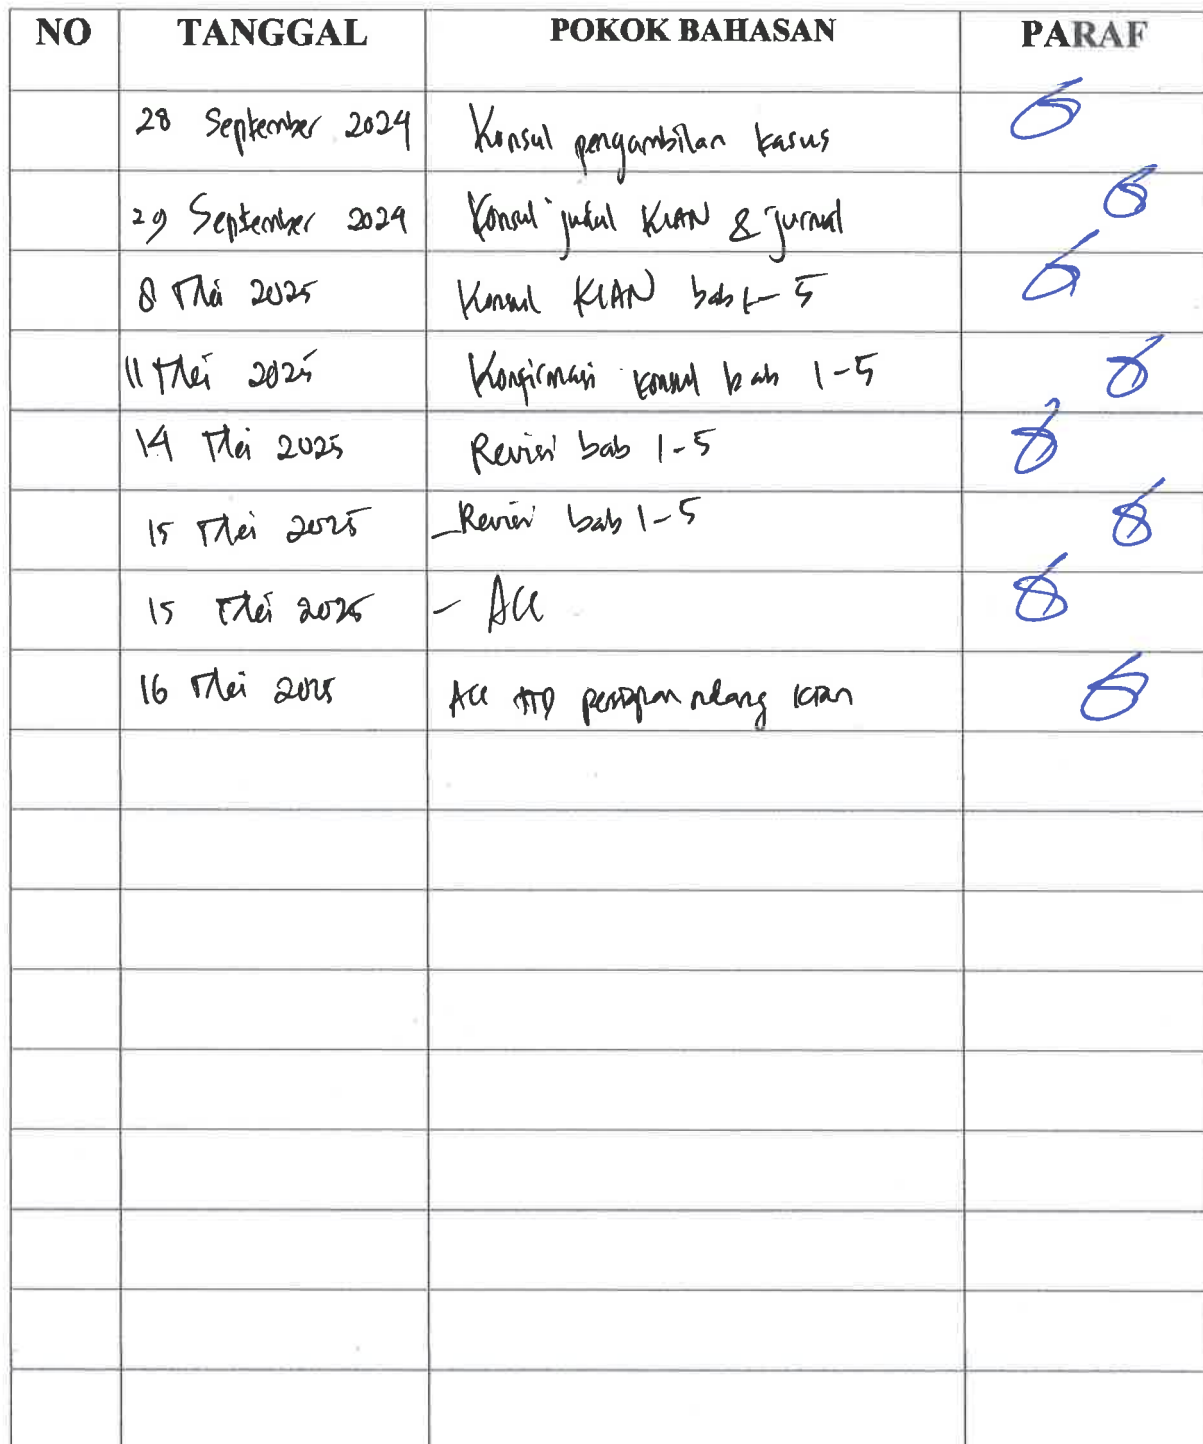 NO TANGGAL POKOK BAHASAN PARAF
28 September 2024 Konsul pengambilan kasus
29 September 2024 Konsul judul KIAN & jurnal
8 Mei 2025 Konsul KIAN bab 1-5
11 Mei 2025 Konfirmasi konsul bab 1-5
14 Mei 2025 Revisi bab 1-5
15 Mei 2025 - Revisi bab 1-5
15 Mei 2025 - ACC
16 Mei 2025 ACC TTD persiapan sidang kian